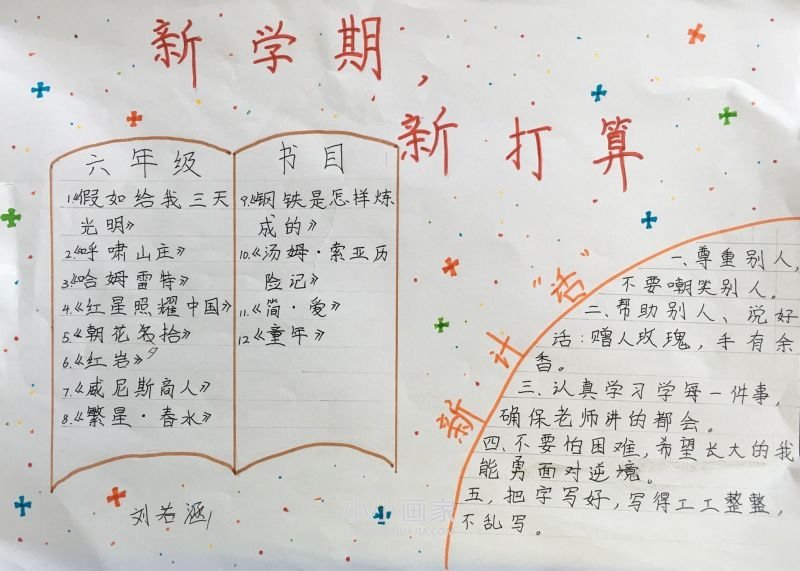 新学期，
新打算
六年级
1.《假如给我三天
光明》
2.《呼啸山庄》
3.《哈姆雷特》
4.《红星照耀中国》
5.《朝花名拾》
6.《红岩》
7.《威尼斯商人》
8.《繁星·春水》
书目
9.《钢铁是怎样炼
成的》
10.《汤姆·索亚历
险记》
11.《简·爱》
12.《童年》
新计“活”
一、尊重别人，
不要嘲类别人。
二、帮助别人、说好
话：赠人玫瑰，手有余
香。
三、认真学习学每一件事，
确保老师讲的都会。
四、不要怕困难，希望长大的我
能勇面对逆境。
五，把字写好，写得工工整整，
不乱写。
刘若涵
小小画家